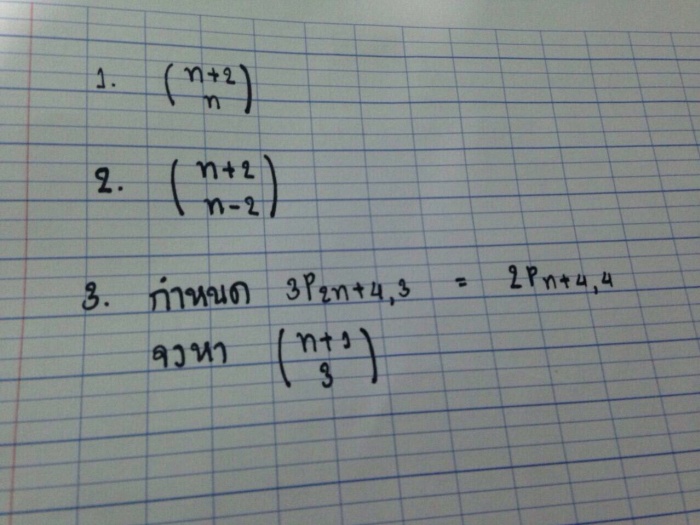 1. (n+2
n)
2. (n+2
n-2)
3. กำหนด 3P2n+4,3 = 2Pn+4,4
จงหา (n+1
3)